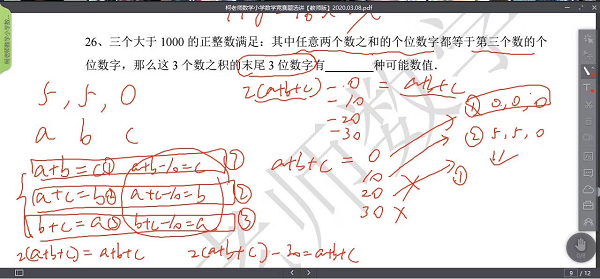 柯老师数学小学数学竞赛题选讲【教师版】2020.03.08.pdf
26、三个大于 1000 的正整数满足：其中任意两个数之和的个位数字都等于第三个数的个
位数字，那么这 3 个数之积的末尾 3 位数字有______种可能数值．
5, 5, 0
a b c
a+b=c① a+b-10=c ①
a+c=b② a+c-10=b ②
b+c=a③ b+c-10=a ③
2(a+b+c)=a+b+c
2(a+b+c)-30=a+b+c
2(a+b+c)-0 = a+b+c
-10
-20
-30
a+b+c = 0
10
20
30 ×
① 0,0,0
② 5,5,0
①
老师数学
9 / 12